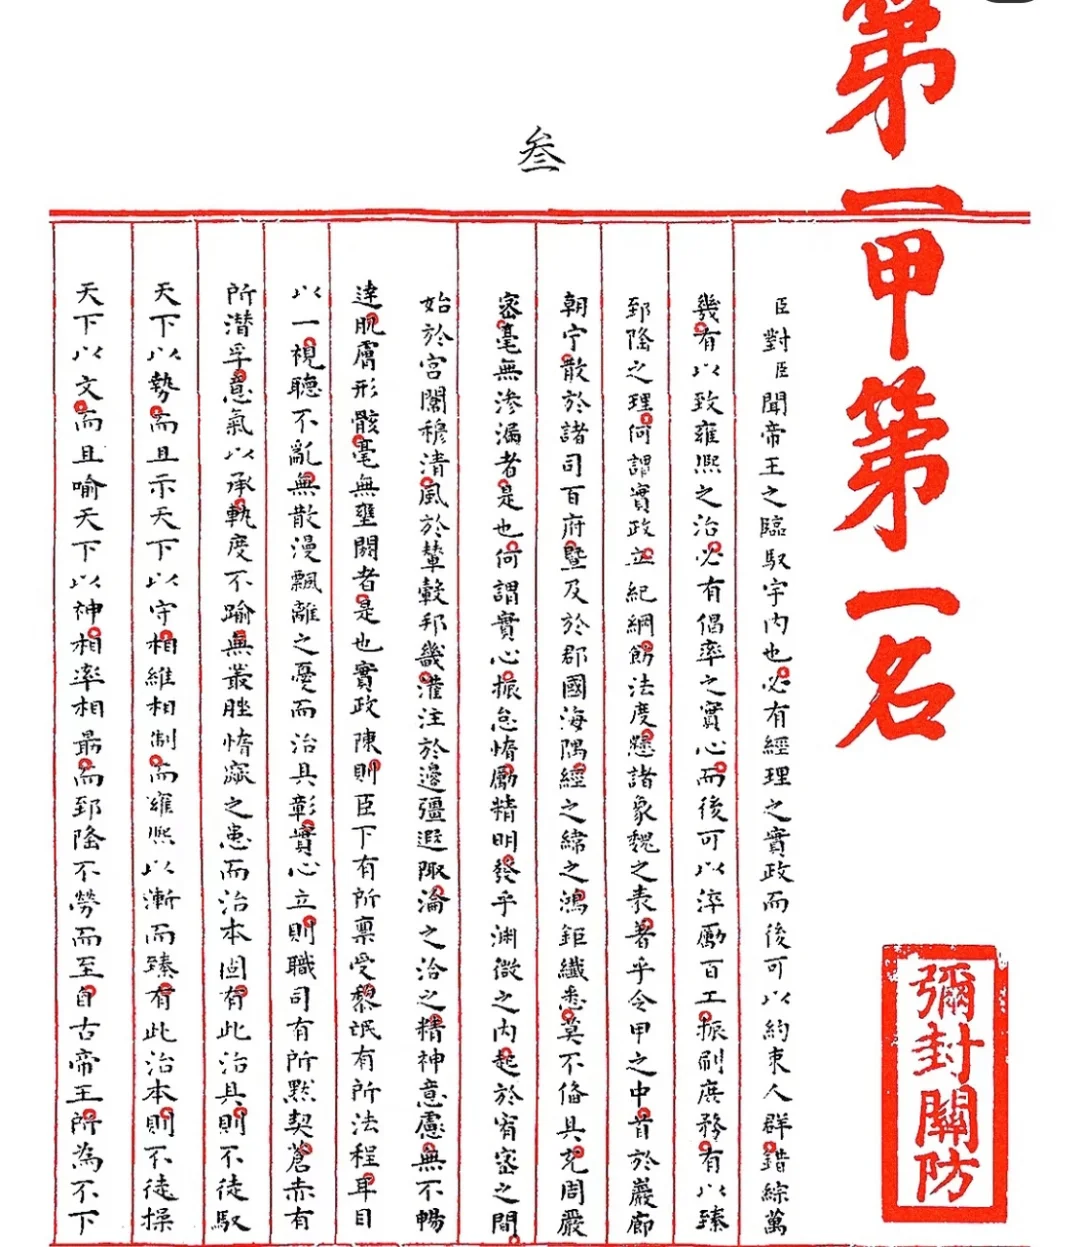 第一甲第一名
彌封關防
叁
臣對臣聞帝王之臨馭宇內也必有經理之實政而後可以約束人群錯綜萬
幾有以致雍熙之治必有倡率之實心而後可以淬勵百工振刷庶務有以臻
郅隆之理何謂實政立紀綱飭法度懸諸象魏之表著乎令甲之中首於巖廊
朝宁散於諸司百府暨及於郡國海隅經之緯之鴻鉅纖悉莫不備具充周嚴
密毫無滲漏者是也何謂實心振怠惰勵精明發乎淵微之內起於宥密之間
始於宮闥穆清風於輦轂邦畿灌注於邊疆遐陬淪之洽之精神意慮無不暢
達肌膚形骸毫無壅閼者是也實政陳則臣下有所稟受黎氓有所法程耳目
以一視聽不亂無散漫飄離之憂而治具彰實心立則職司有所默契蒼赤有
所潛孚意氣以承軌度不踰無叢脞惰窳之患而治本固有此治具則不徒馭
天下以勢而且示天下以守相維相制而雍熙以漸而臻有此治本則不徒操
天下以文而且喻天下以神相率相勗而郅隆不勞而至自古帝王所為不下